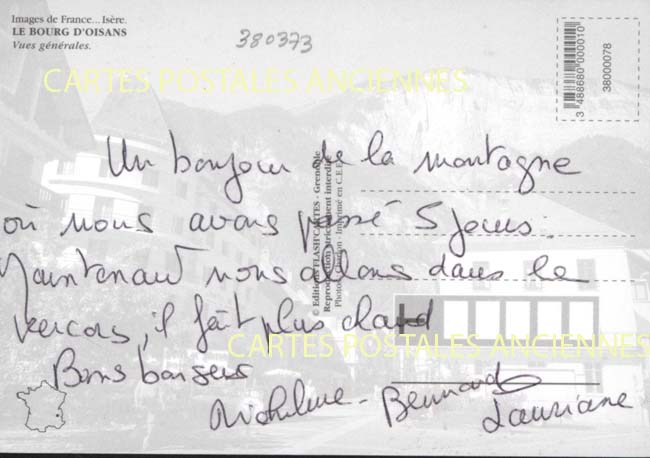 Images de France... Isère.
LE BOURG D'OISANS
Vues générales.
380373
3 488680 000010
38000078
CARTES POSTALES ANCIENNES
Un bonjour de la montagne
où nous avons passé 5 jours.
Maintenant nous allons dans le
vercors, il fait plus chaud
Bons baisers
Micheline - Bernard
Lauriane
© Editions FLASH'CARTES - Grenoble
Reproduction strictement interdite
Imprimé en C.E.E.
CARTES POSTALES ANCIENNES